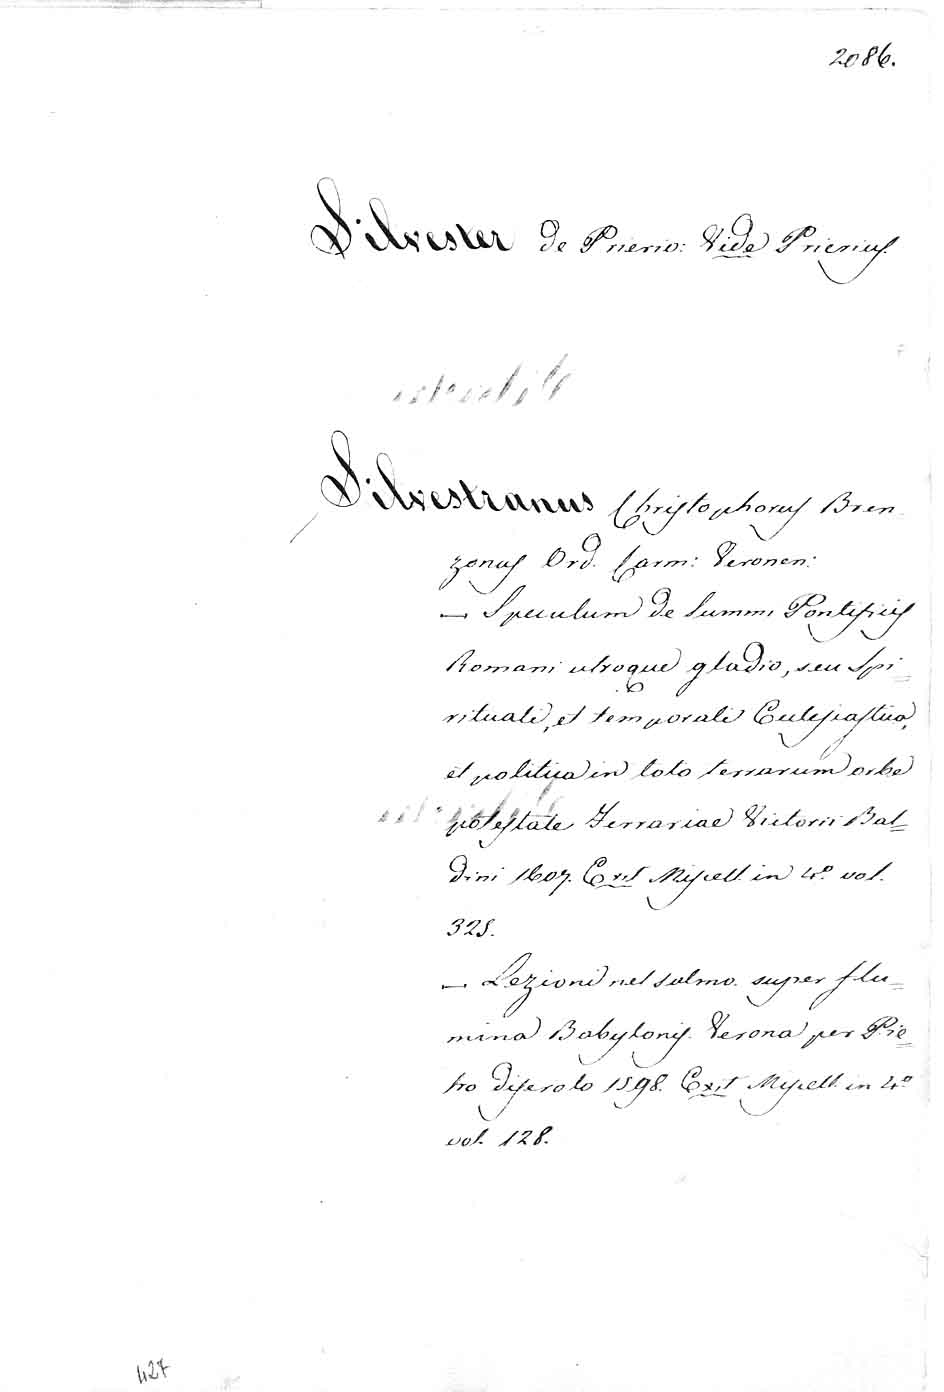 2086.
Silvester de Prierio: Vide Prierius.
Silvestranus Christophorus Bren
zonus Ord. Carm: Veronen:
— Speculum de Summi Pontificis
Romani utroque gladio, seu Spi=
rituali, et temporali Eclesiastica,
et politica in toto terrarum orbe
potestate Ferrariae Victorii Bal=
dini 1607. Exit Miscell. in 4º vol.
325.
— Lezioni nel salmo super flu=
mina Babylonis. Verona per Pie=
tro Diserolo 1598. Exit Miscell. in 4º
vol. 128.
427